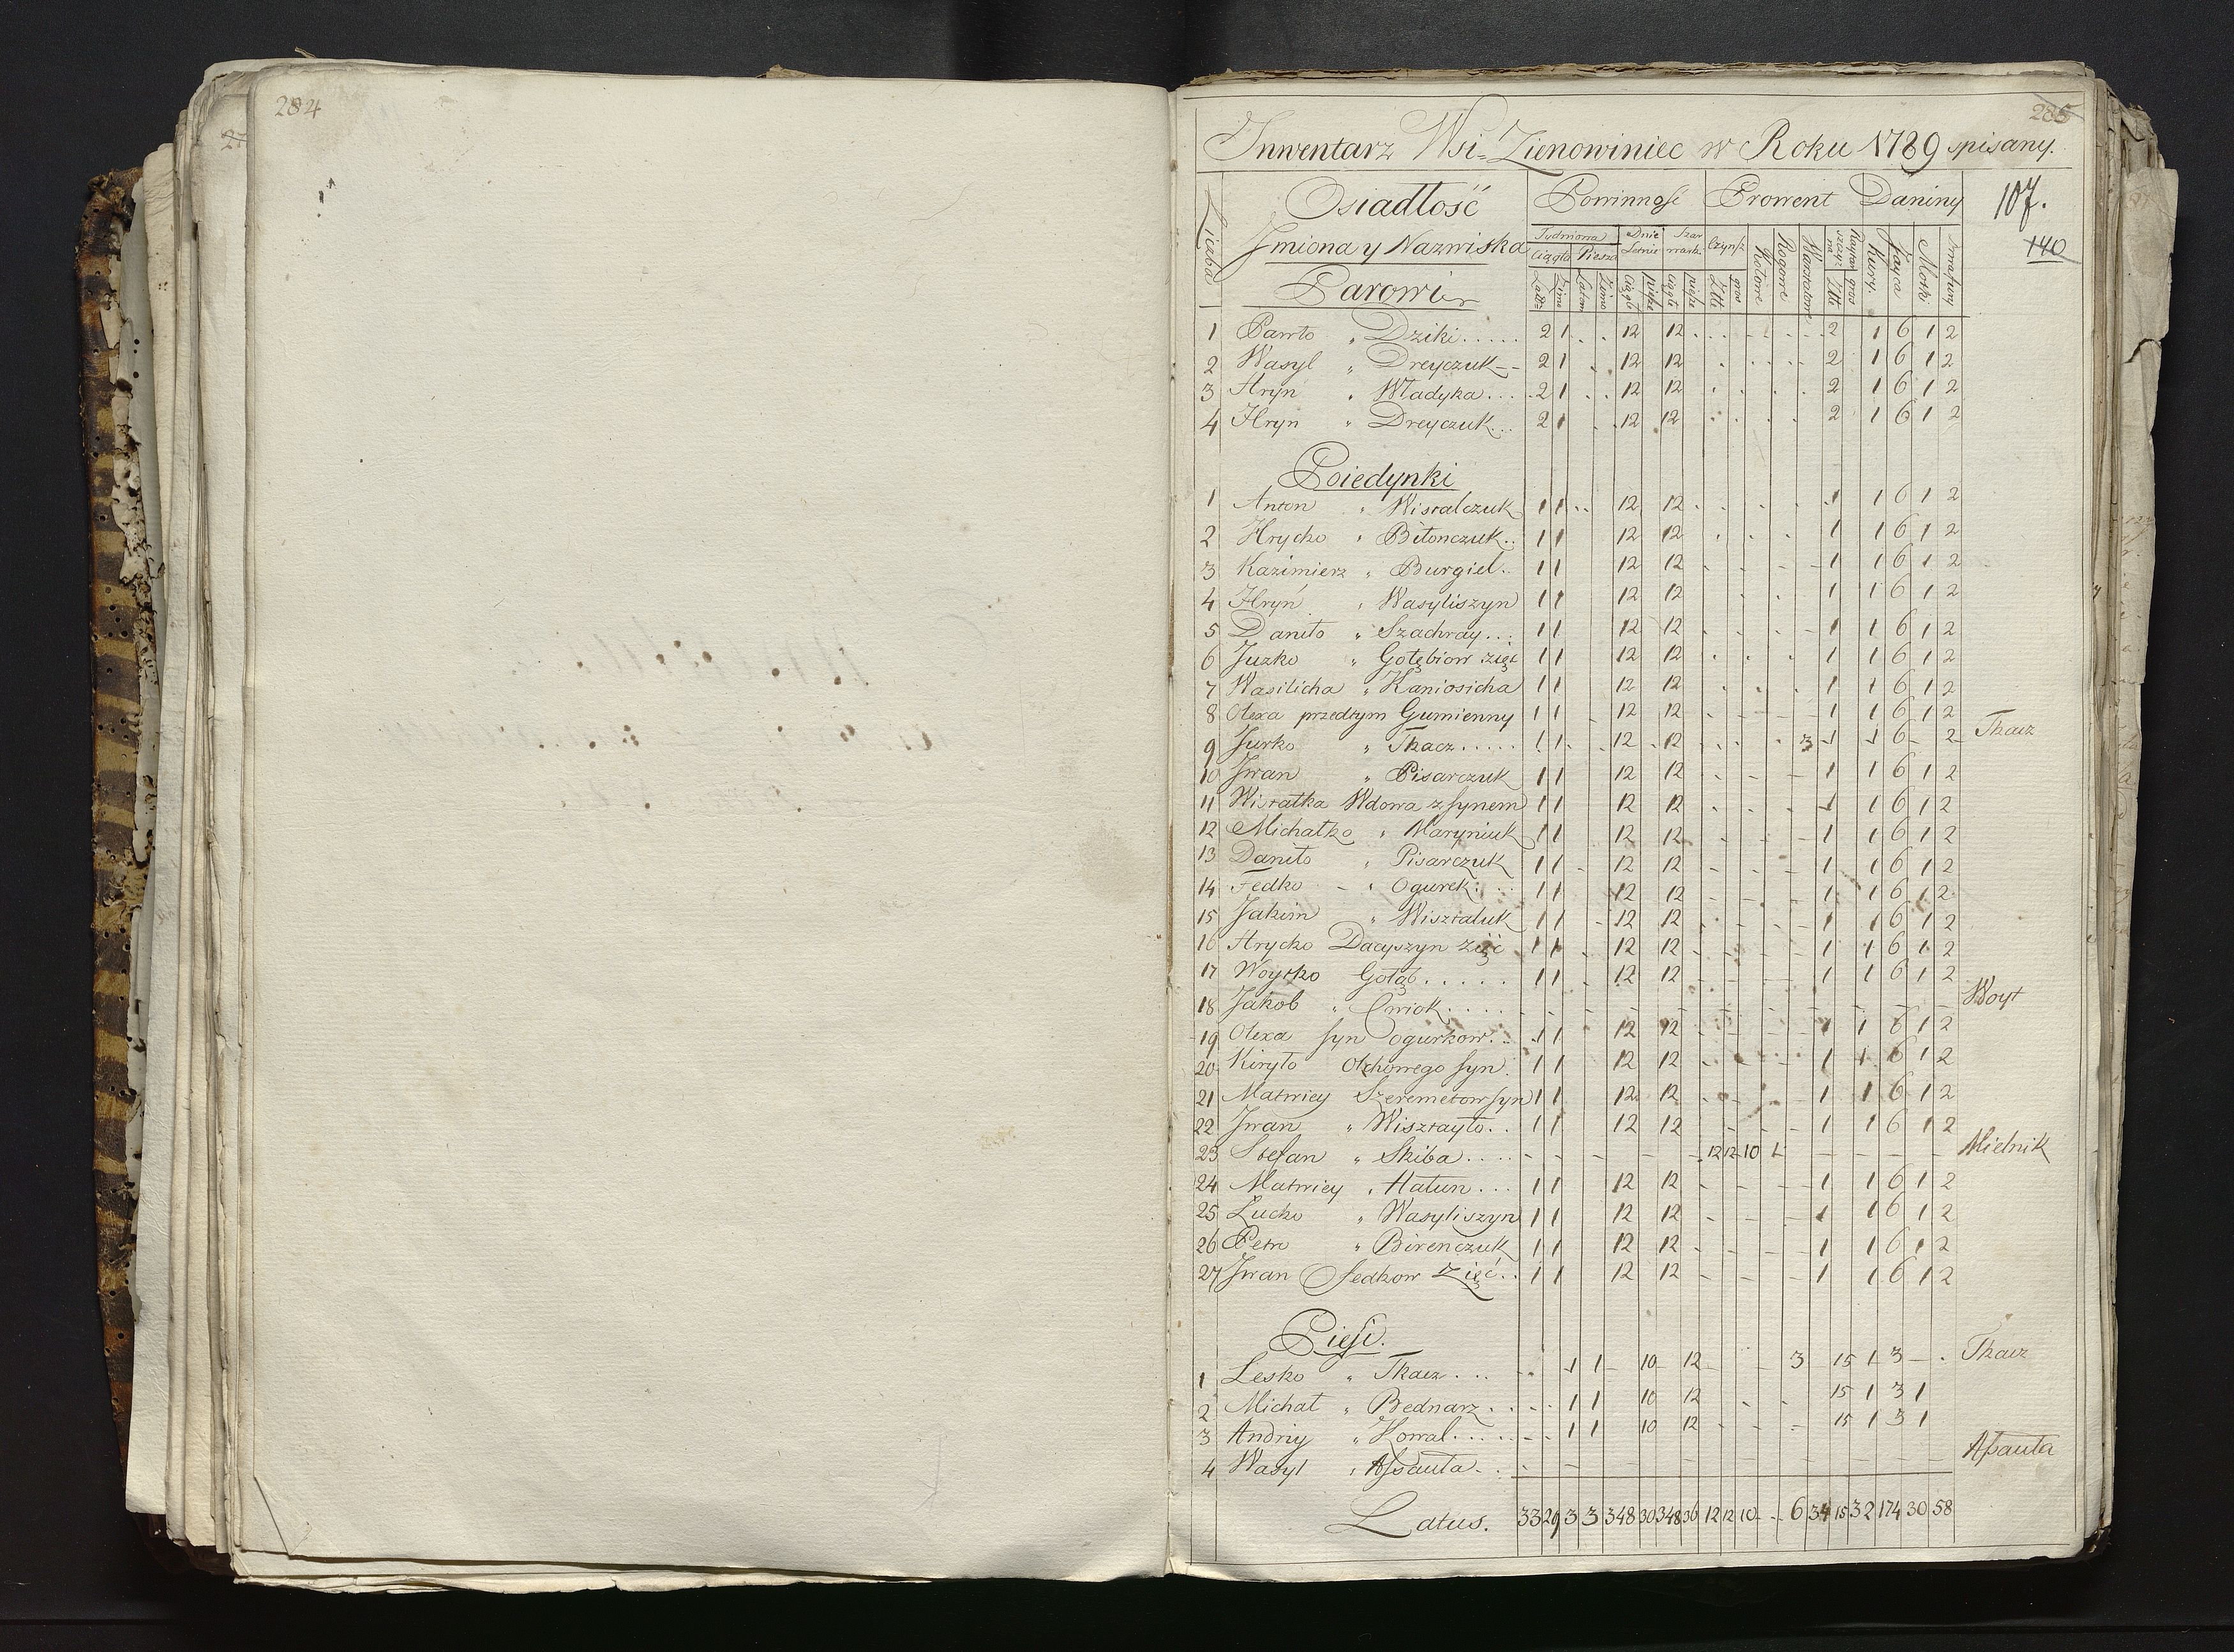 284
285
Inwentarz Wsi Zienowiniec w Roku 1789 spisany.
Liczba Osiadłość Powinność Prowent Daniny 107.
Imiona y Nazwiska Tydniowa Dnie Letnie Szarwark Czynsz Rotowe Rogowe Warsztatowe Kury Jayca Motki 140
Ciągła Piesza Ciągłe piesze Ciągłe piesze Złłe gros Złłe gros
Parowi Latem Zimo
1 Pawło " Dziki..... 2 1 . . 12 12 . . . - - . . 2 1 6 1 2
2 Wasyl " Dreyczuk-- 2 1 . 12 12 . . . . 2 1 6 1 2
3 Hryn " Władyka.... 2 1 . . 12 12 . . . . 2 1 6 1 2
4 Hryn " Dreyczuk... 2 1 . . 12 12 . . . 2 1 6 1 2
Poiedynki
1 Anton " Wistalczuk 1 1 . . 12 12 . . . . 1 1 6 1 2
2 Hrycko " Bitonczuk.. 1 1 12 12 . . . 1 1 6 1 2
3 Kazimierz " Burgiel.. 1 1 12 12 - - - - 1 1 6 1 2
4 Hryń " Wasyliszyn 1 1 12 12 . . 1 1 6 1 2
5 Daniło " Szachray... 1 1 12 12 . . . - 1 1 6 1 2
6 Juzko " Gołębiow zięć 1 1 12 12 . . . 1 1 6 1 2
7 Wasilicha " Kaniosicha 1 1 12 12 . . . 1 1 6 1 2
8 Olexa przedtym Gumienny 1 1 - 12 12 - - - - 1 1 6 1 2
9 Jurko " Tkacz..... 1 1 . . 12 . 12 . . . . 3 1 1 6 - 2 Tkacz
10 Jwan " Pisarczuk 1 1 12 12 - - - 1 1 6 1 2
11 Wisłatka Wdowa z synem 1 1 12 12 . . . 1 1 6 1 2
12 Michałko " Maryniuk 1 1 12 12 - - - 1 1 6 1 2
13 Daniło " Pisarczuk 1 1 - 12 12 - - - 1 1 6 1 2
14 Fedko - " Ogurek... 1 1 12 12 - - - 1 1 6 1 2
15 Jakim " Wisztaluk 1 1 - 12 12 - - - - 1 1 6 1 2
16 Hrycko Dacyszyn zięć 1 1 - 12 12 - - - - 1 1 6 1 2
17 Woytko Gołąb..... 1 1 - 12 12 - - - - 1 1 6 1 2
18 Jakob " Cwiok.... - - - - - - - - - - - - Woyt
19 Olexa syn ogurkow.. 1 1 12 12 - - - - 1 1 6 1 2
20 Kiryło Olchowego syn. 1 1 12 12 - - - - 1 1 6 1 2
21 Matwiey Szeremetow syn 1 1 12 12 - - - 1 1 6 1 2
22 Jwan " Wisztayło.. 1 1 12 12 - - - - 1 1 6 1 2
23 Stefan " Skiba.... - - - - - - 12 12 10 - - - - - - Mielnik
24 Matwiey " Hatun... 1 1 12 12 - - - - 1 1 6 1 2
25 Lucko " Wasyliszyn 1 1 12 12 - - - 1 1 6 1 2
26 Petro " Birenczuk 1 1 12 12 - - - - 1 1 6 1 2
27 Jwan Fedkow Zięć.. 1 1 12 12 - - - 1 1 6 1 2
Piesi.
1 Lesko " Tkacz.... 1 1 - 10 12 - - 3 15 1 3 - . Tkacz
2 Michał " Bednarz.... 1 1 10 12 - - 15 1 3 1
3 Andriy " Kowal...... 1 1 10 12 - - - 15 1 3 1
4 Wasyl " Assauła.. - - - - - - - - - - Assauła
Latus. 33 29 3 3 348 30 348 36 12 12 10 - - 6 34 15 32 174 30 58